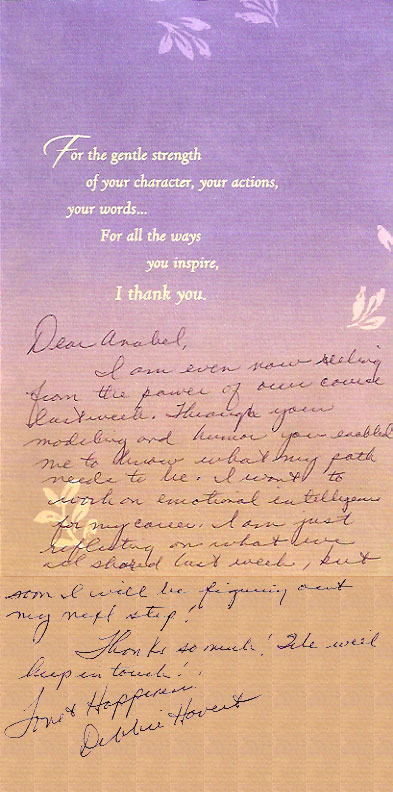 For the gentle strength
of your character, your actions,
your words...
For all the ways
you inspire,
I thank you.
Dear Anabel,
I am even now reeling
from the power of our course
last week. Through your
modeling and humor you enabled
me to know what my path
needs to be. I want to
work on emotional intelligence
for my career. I am just
reflecting on what we
all shared last week, but
soon I will be figuring out
my next step!
Thanks so much! We will
keep in touch!
Love & Happiness
Debbie